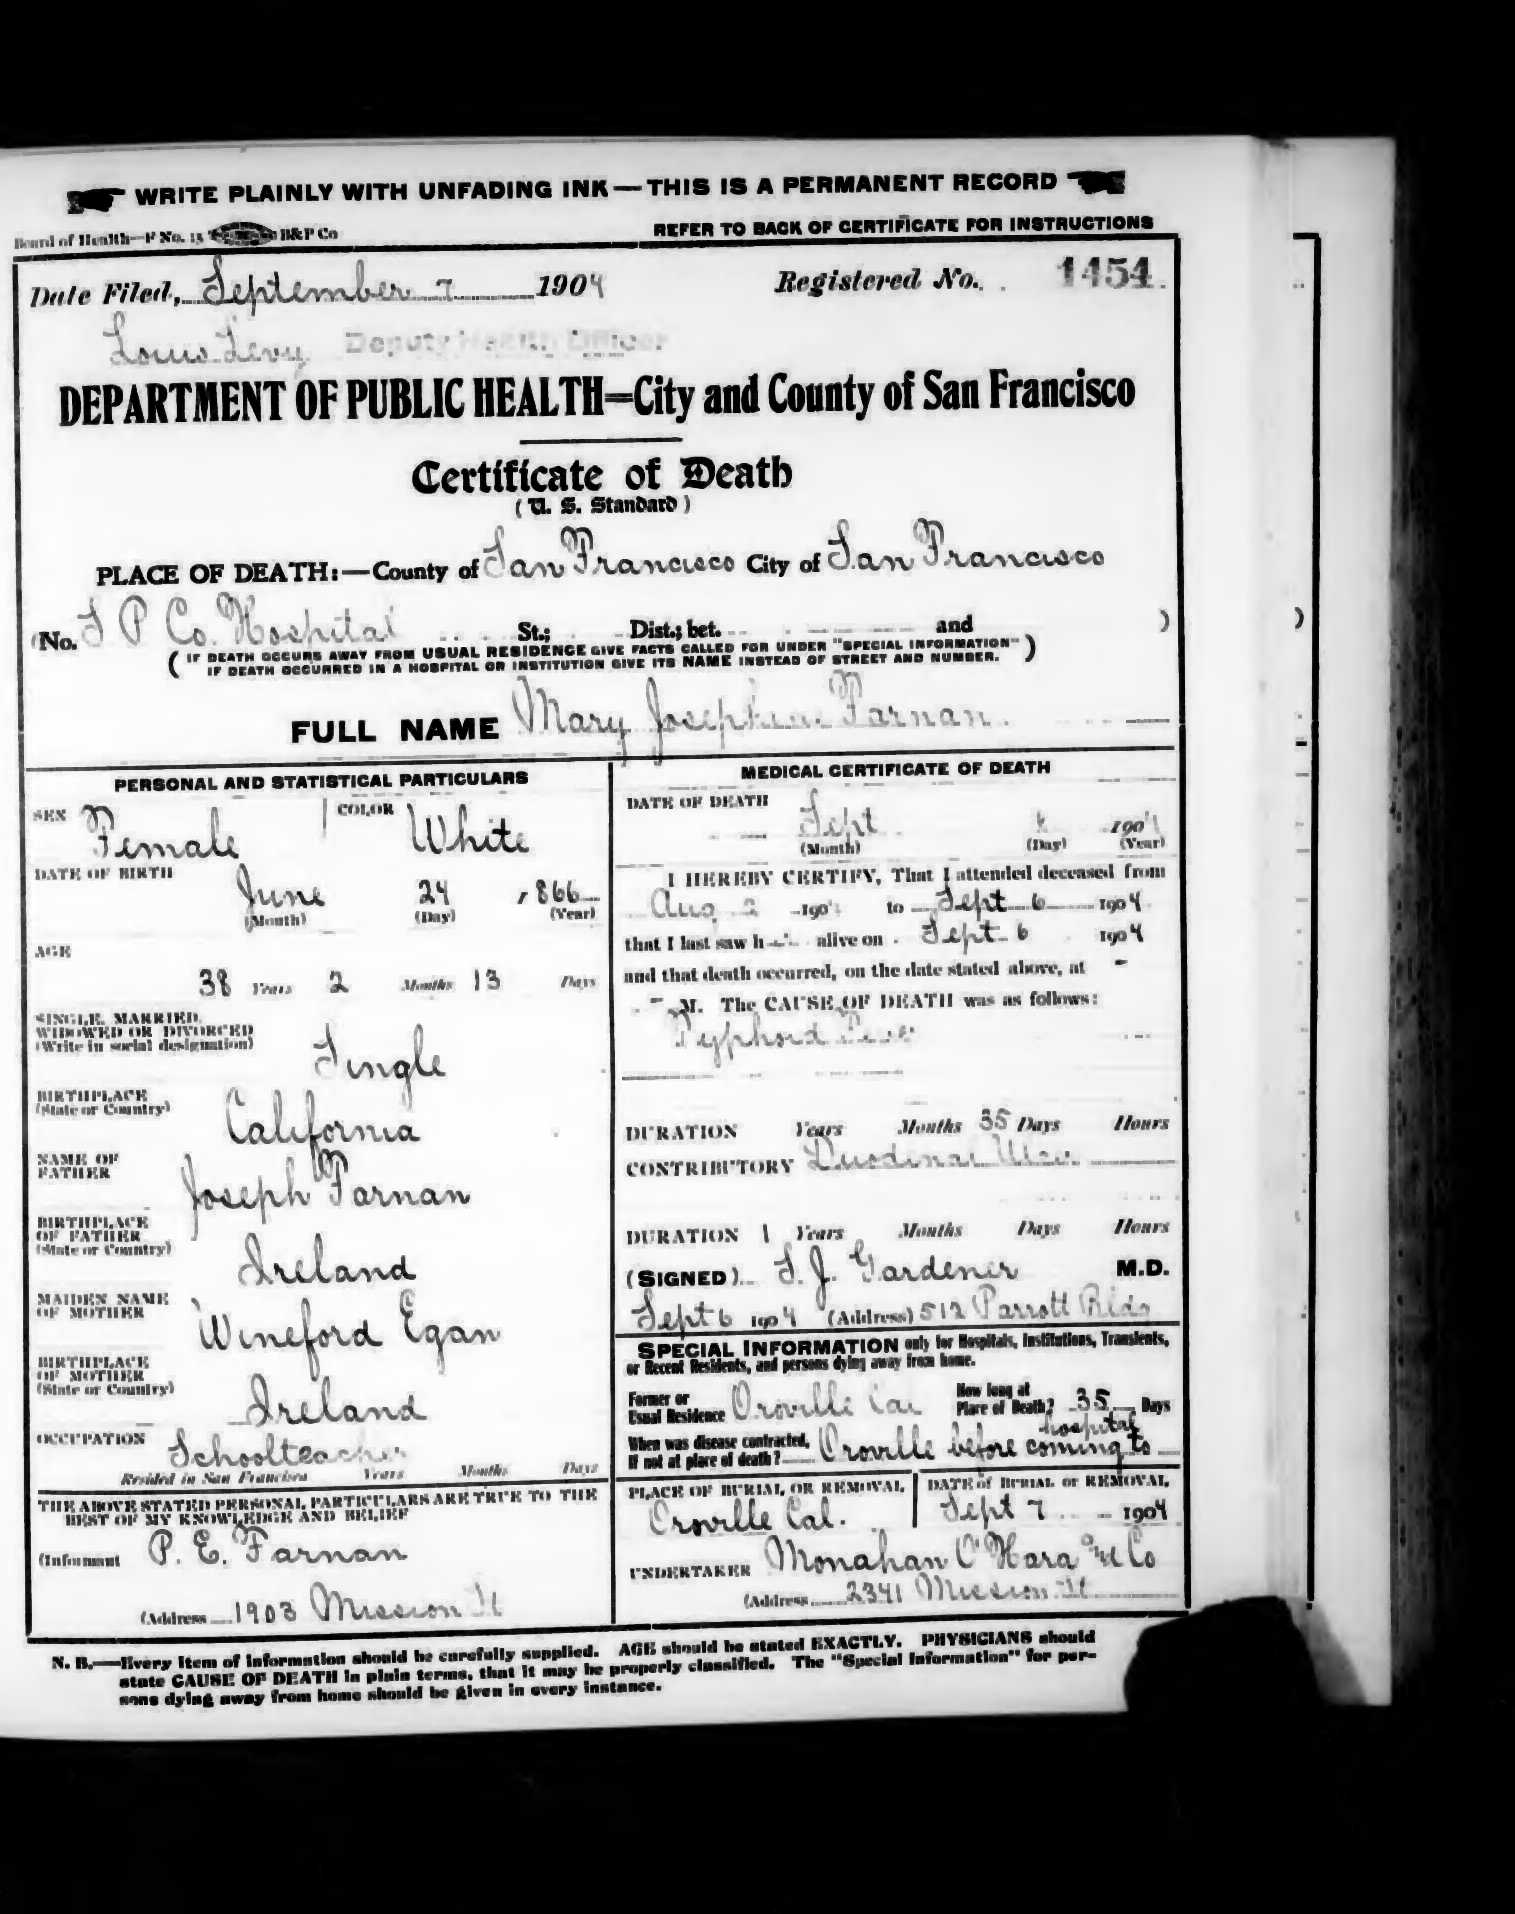 WRITE PLAINLY WITH UNFADING INK — THIS IS A PERMANENT RECORD
Board of Health—F No. 15 B&P Co
REFER TO BACK OF CERTIFICATE FOR INSTRUCTIONS
Date Filed, September 7 1904 Registered No. 1454
Louis Levy Deputy Health Officer
DEPARTMENT OF PUBLIC HEALTH=City and County of San Francisco
Certificate of Death
( U. S. Standard )
PLACE OF DEATH:—County of San Francisco City of San Francisco
(No. S P Co. Hospital St.; Dist.; bet. and )
( IF DEATH OCCURS AWAY FROM USUAL RESIDENCE GIVE FACTS CALLED FOR UNDER "SPECIAL INFORMATION" )
IF DEATH OCCURRED IN A HOSPITAL OR INSTITUTION GIVE ITS NAME INSTEAD OF STREET AND NUMBER.
FULL NAME Mary Josephine Farnan
PERSONAL AND STATISTICAL PARTICULARS
SEX Female COLOR White
DATE OF BIRTH
June 24 , 866
(Month) (Day) (Year)
AGE
38 Years 2 Months 13 Days
SINGLE, MARRIED,
WIDOWED OR DIVORCED
(Write in social designation)
Single
BIRTHPLACE
(State or Country)
California
NAME OF
FATHER
Joseph Farnan
BIRTHPLACE
OF FATHER
(State or Country)
Ireland
MAIDEN NAME
OF MOTHER
Wineford Egan
BIRTHPLACE
OF MOTHER
(State or Country)
Ireland
OCCUPATION Schoolteacher
Resided in San Francisco Years Months Days
THE ABOVE STATED PERSONAL PARTICULARS ARE TRUE TO THE
BEST OF MY KNOWLEDGE AND BELIEF
(Informant P. E. Farnan
(Address 1903 Mission St
MEDICAL CERTIFICATE OF DEATH
DATE OF DEATH
Sept 1904
(Month) (Day) (Year)
I HEREBY CERTIFY, That I attended deceased from
Aug 2 1904 to Sept 6 1904
that I last saw h alive on Sept 6 1904
and that death occurred, on the date stated above, at -
- M. The CAUSE OF DEATH was as follows:
Typhoid Fever
DURATION Years Months 35 Days Hours
CONTRIBUTORY Duodenal Ulcer
DURATION 1 Years Months Days Hours
(SIGNED) T. J. Gardener M.D.
Sept 6 1904 (Address) 512 Parrott Bldg
SPECIAL INFORMATION only for Hospitals, Institutions, Transients,
or Recent Residents, and persons dying away from home.
Former or
Usual Residence Oroville Cal
How long at
Place of Death? 35 Days
When was disease contracted,
If not at place of death? Oroville before coming to hospital
PLACE OF BURIAL OR REMOVAL
Oroville Cal.
DATE of BURIAL or REMOVAL
Sept 7 1904
UNDERTAKER Monahan O'Hara and Co
(Address 2341 Mission St
N. B.—Every item of information should be carefully supplied. AGE should be stated EXACTLY. PHYSICIANS should
state CAUSE OF DEATH in plain terms, that it may be properly classified. The "Special Information" for per-
sons dying away from home should be given in every instance.